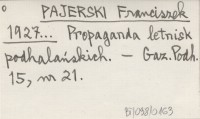 PAJERSKI Franciszek
1927... Propaganda letnisk
podhalańskich. – Gaz. Podh.
15, nr 21.